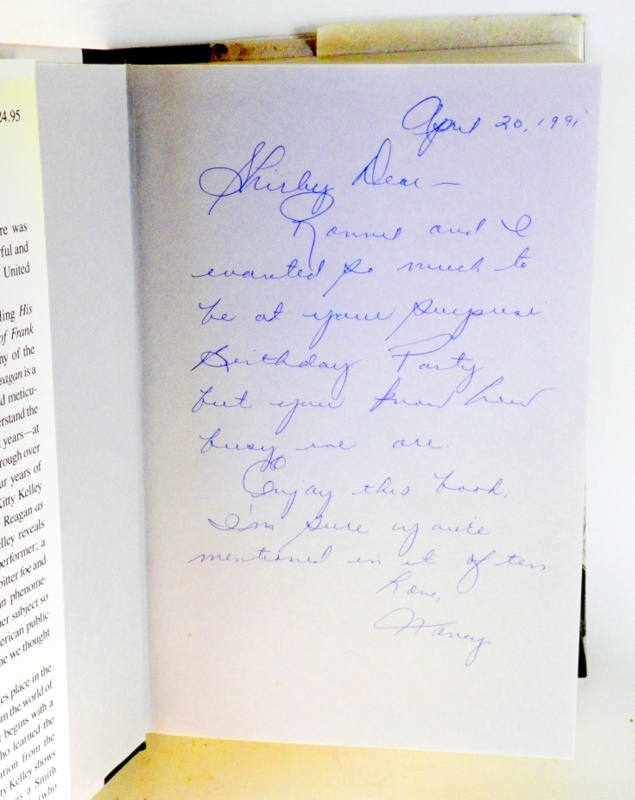 24.95
re was
ful and
United
ling His
of Frank
hy of the
eagan is a
d meticu-
erstand the
years—at
rough over
ur years of
Kitty Kelley
Reagan as
lley reveals
performer; a
bitter foe and
an phenome-
her subject so
erican public
ne we thought
es place in the
m the world of
t begins with a
ho learned the
ation from the
ty Kelley shows
as a Smith
(who
April 20, 1991
Shirley Dear —
Ronnie and I
wanted so much to
be at your surprise
Birthday Party
but you know how
busy we are.
Enjoy this book,
I'm sure you're
mentioned in it often
Love,
Nancy